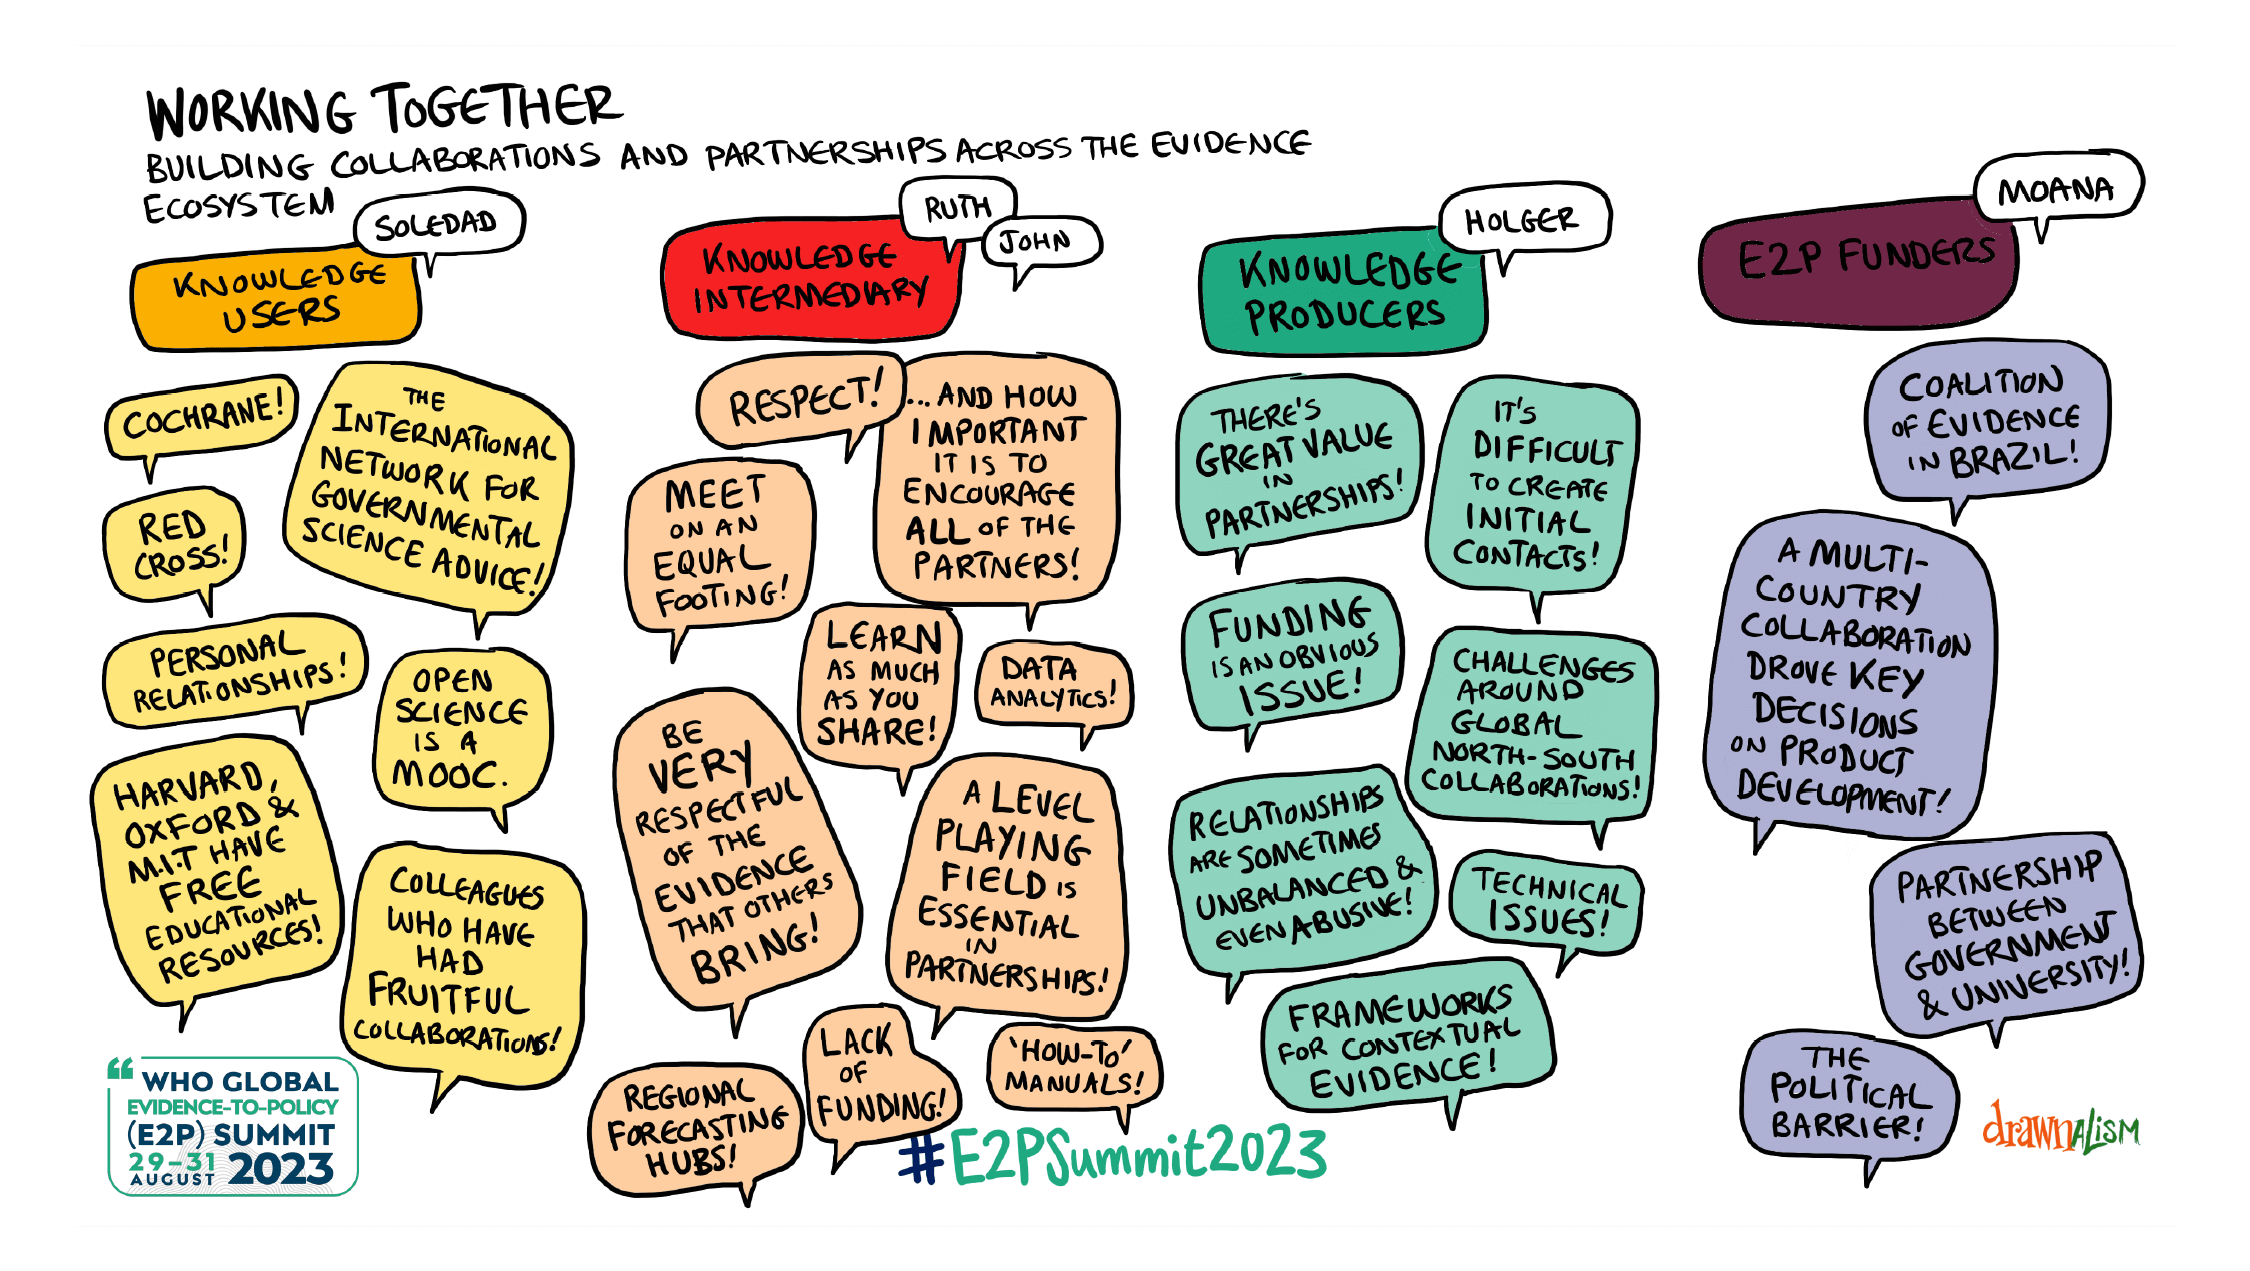 WORKING TOGETHER
BUILDING COLLABORATIONS AND PARTNERSHIPS ACROSS THE EVIDENCE
ECOSYSTEM
SOLEDAD
KNOWLEDGE
USERS
COCHRANE!
THE
INTERNATIONAL
NETWORK FOR
GOVERNMENTAL
SCIENCE ADVICE!
RED
CROSS!
PERSONAL
RELATIONSHIPS!
OPEN
SCIENCE
IS A
MOOC.
HARVARD,
OXFORD &
M.I.T HAVE
FREE
EDUCATIONAL
RESOURCES!
COLLEAGUES
WHO HAVE
HAD
FRUITFUL
COLLABORATIONS!
RUTH
JOHN
KNOWLEDGE
INTERMEDIARY
RESPECT!
...AND HOW
IMPORTANT
IT IS TO
ENCOURAGE
ALL OF THE
PARTNERS!
MEET
ON AN
EQUAL
FOOTING!
LEARN
AS MUCH
AS YOU
SHARE!
DATA
ANALYTICS!
BE
VERY
RESPECTFUL
OF THE
EVIDENCE
THAT OTHERS
BRING!
A LEVEL
PLAYING
FIELD IS
ESSENTIAL
IN
PARTNERSHIPS!
LACK
OF
FUNDING!
'HOW-TO'
MANUALS!
REGIONAL
FORECASTING
HUBS!
HOLGER
KNOWLEDGE
PRODUCERS
THERE'S
GREAT VALUE
IN
PARTNERSHIPS!
IT'S
DIFFICULT
TO CREATE
INITIAL
CONTACTS!
FUNDING
IS AN OBVIOUS
ISSUE!
CHALLENGES
AROUND
GLOBAL
NORTH-SOUTH
COLLABORATIONS!
RELATIONSHIPS
ARE SOMETIMES
UNBALANCED &
EVEN ABUSIVE!
TECHNICAL
ISSUES!
FRAMEWORKS
FOR CONTEXTUAL
EVIDENCE!
MOANA
E2P FUNDERS
COALITION
OF EVIDENCE
IN BRAZIL!
A MULTI-
COUNTRY
COLLABORATION
DROVE KEY
DECISIONS
ON PRODUCT
DEVELOPMENT!
PARTNERSHIP
BETWEEN
GOVERNMENT
& UNIVERSITY!
THE
POLITICAL
BARRIER!
“ WHO GLOBAL
EVIDENCE-TO-POLICY
(E2P) SUMMIT
29–31
AUGUST 2023
#E2PSummit2023
drawnalism